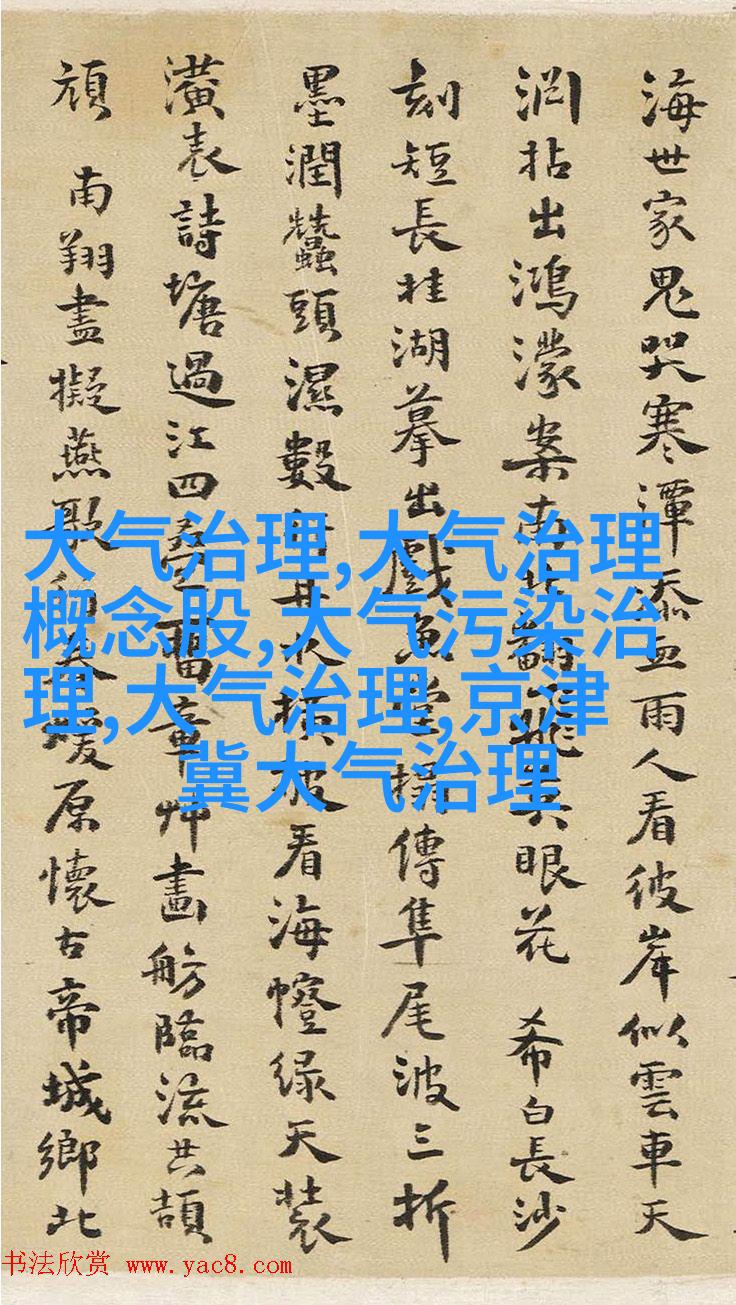 海世家鬼哭寒潭添血雨人看彼岸似雲車天
拈出鴻濛案南眼花 希白長沙
刻短長桂湖摹出戲魚堂搨傳隼尾波三折
墨潤蠶頭濕數看海幢绿天裝
潢表詩塘過江四章艸畫舫臨流共頡
頏 南翔盡擬燕歌暖原懷古帝城鄉北
大气治理,大气治理
概念股,大气污染治
理,大气治理,京津
冀大气治理
书法欣赏 www.yac8.com